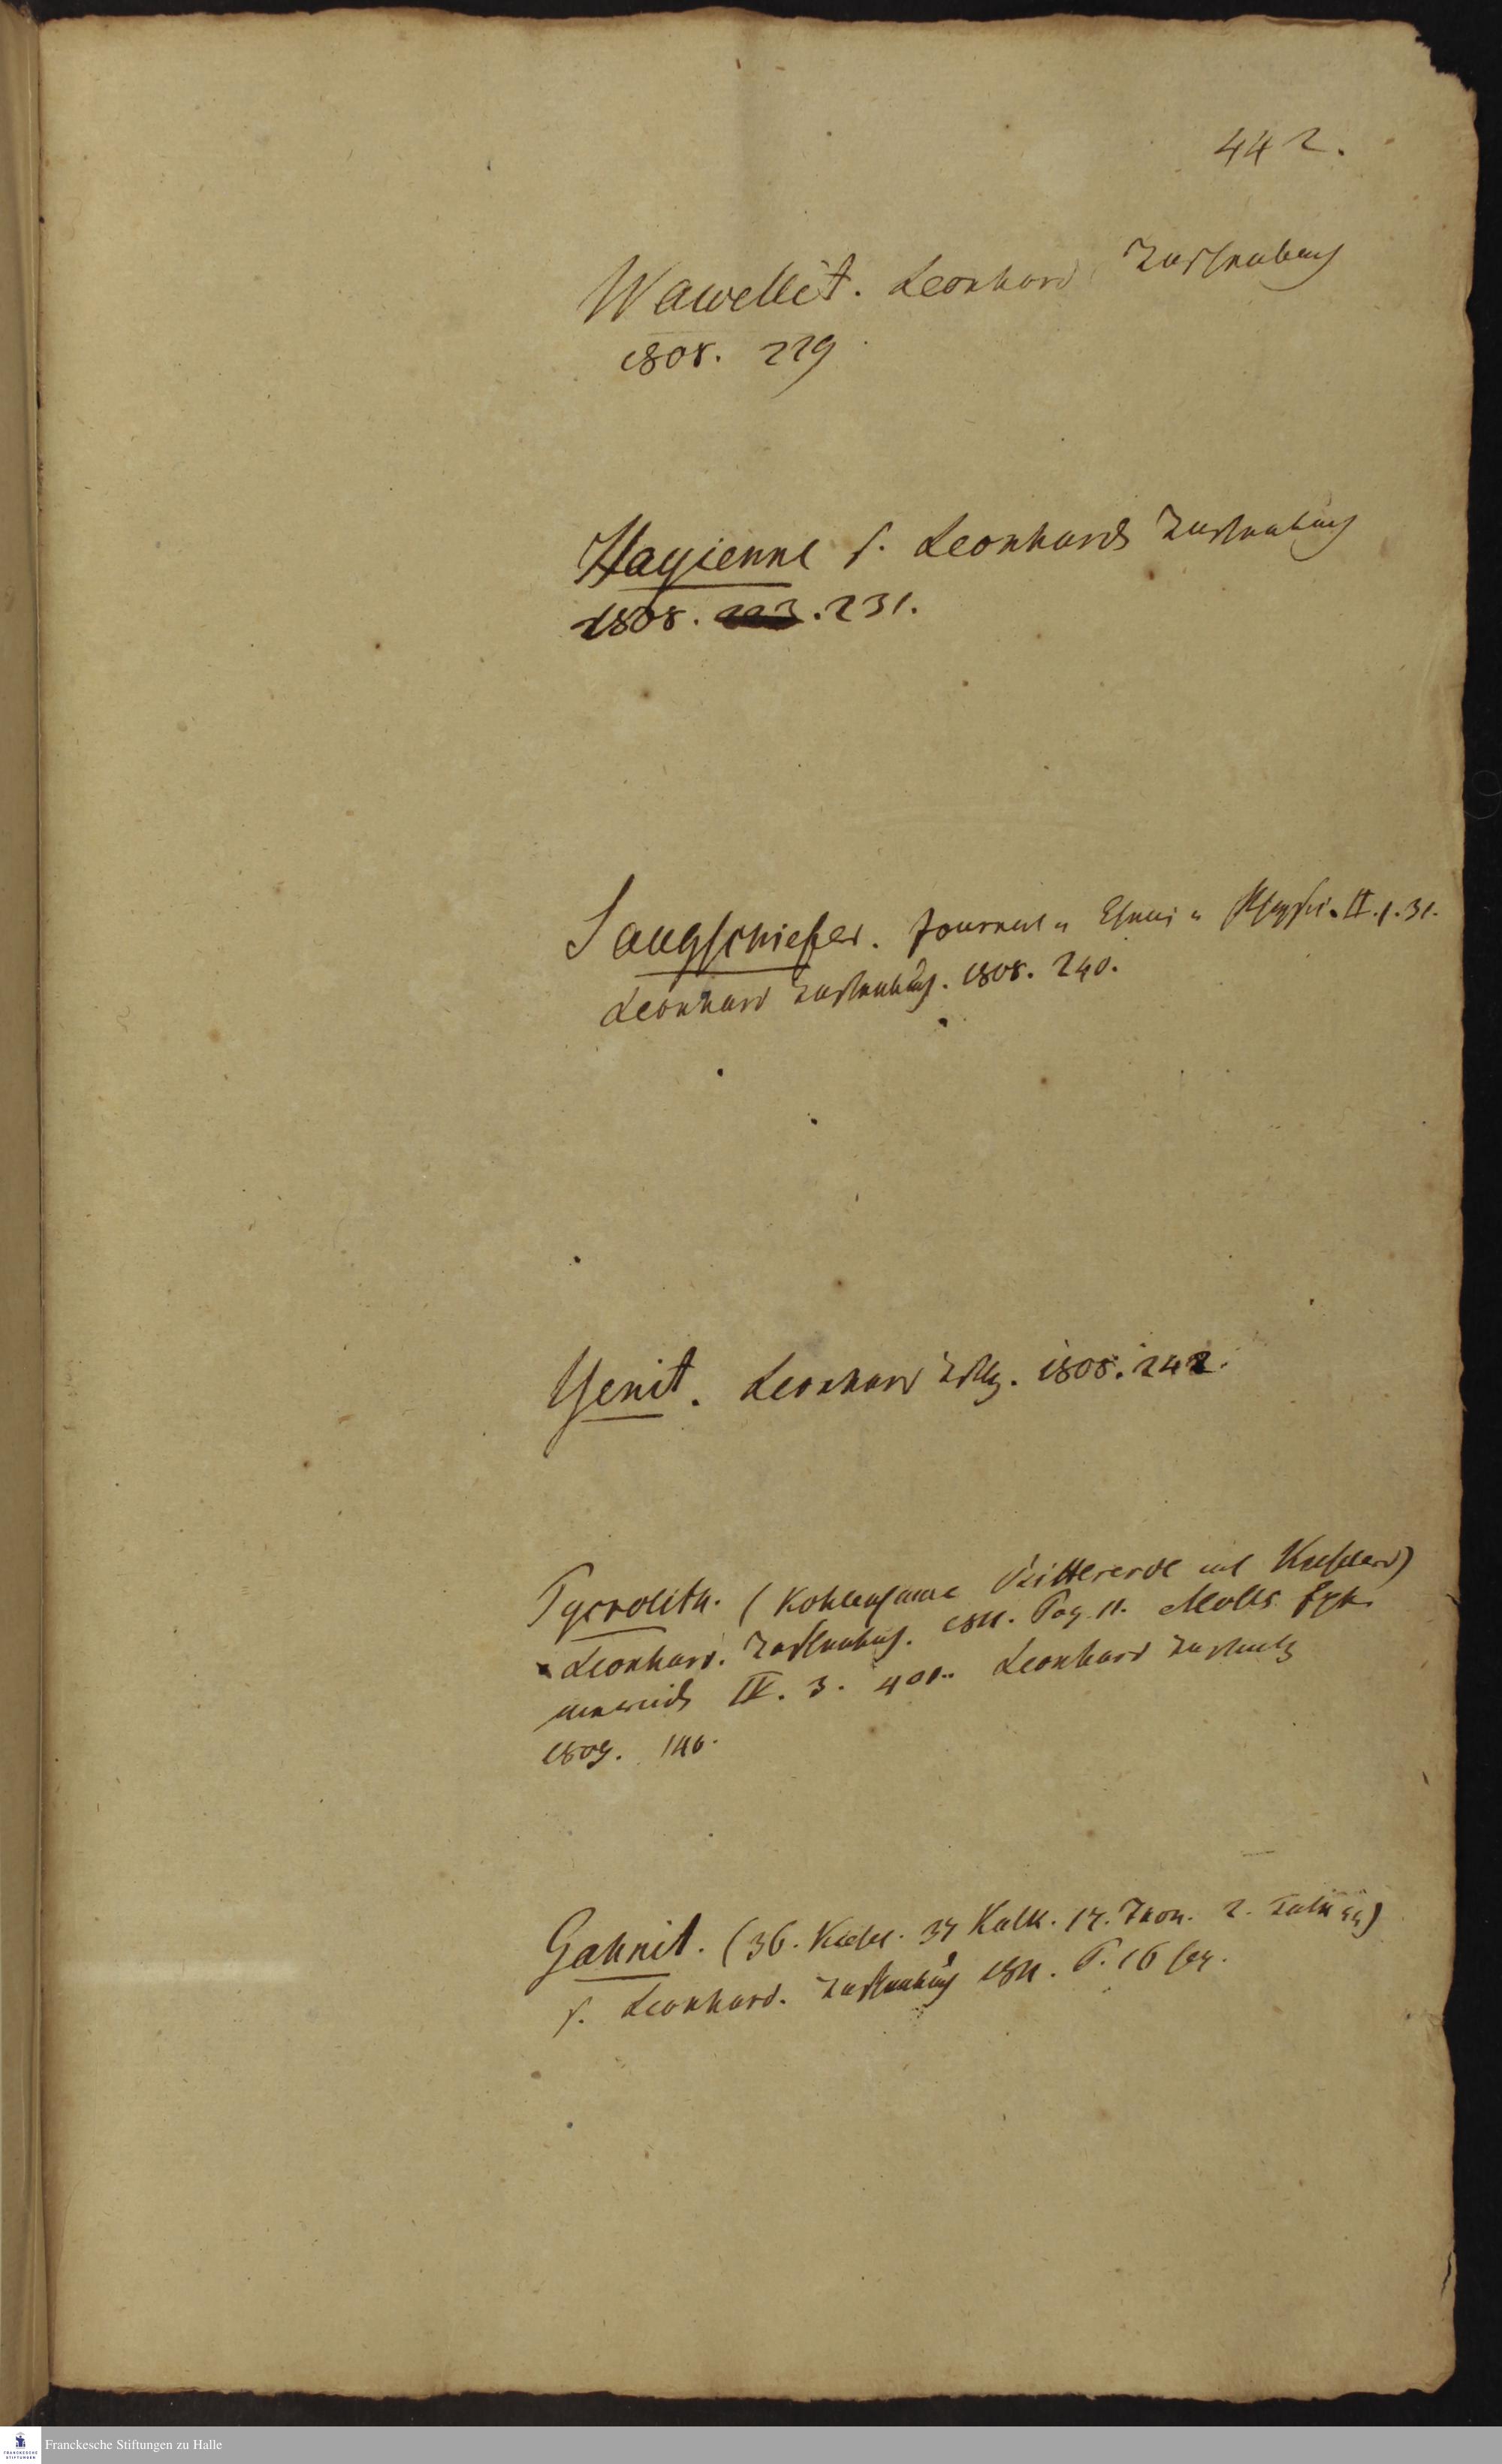 442.
Wawellit. Leonhard Taschenbuch
1808. 229
Hayienne s. Leonhards Taschenbuch
1808. 231.
Saugschiefer. Journal u Chemi u Physik. II. 1. 31.
Leonhard Taschenbuch. 1808. 240.
Yenit. Leonhard Tschb. 1808. 242.
Pycrolith. (Kohlensaure Bittererde mit Kieselerd)
Leonhard. Taschenbuch. 1811. Pag. 11. Molls
IV. 3. 401. Leonhard Taschenb
1809. 146.
Gahnit. (36. Kiesel. 37 Kalk. 17. Thon. 2. Talk)
s. Leonhard. Taschenbuch 1811. P. 16 seq.
Franckesche Stiftungen zu Halle
FRANCKESCHE
STIFTUNGEN